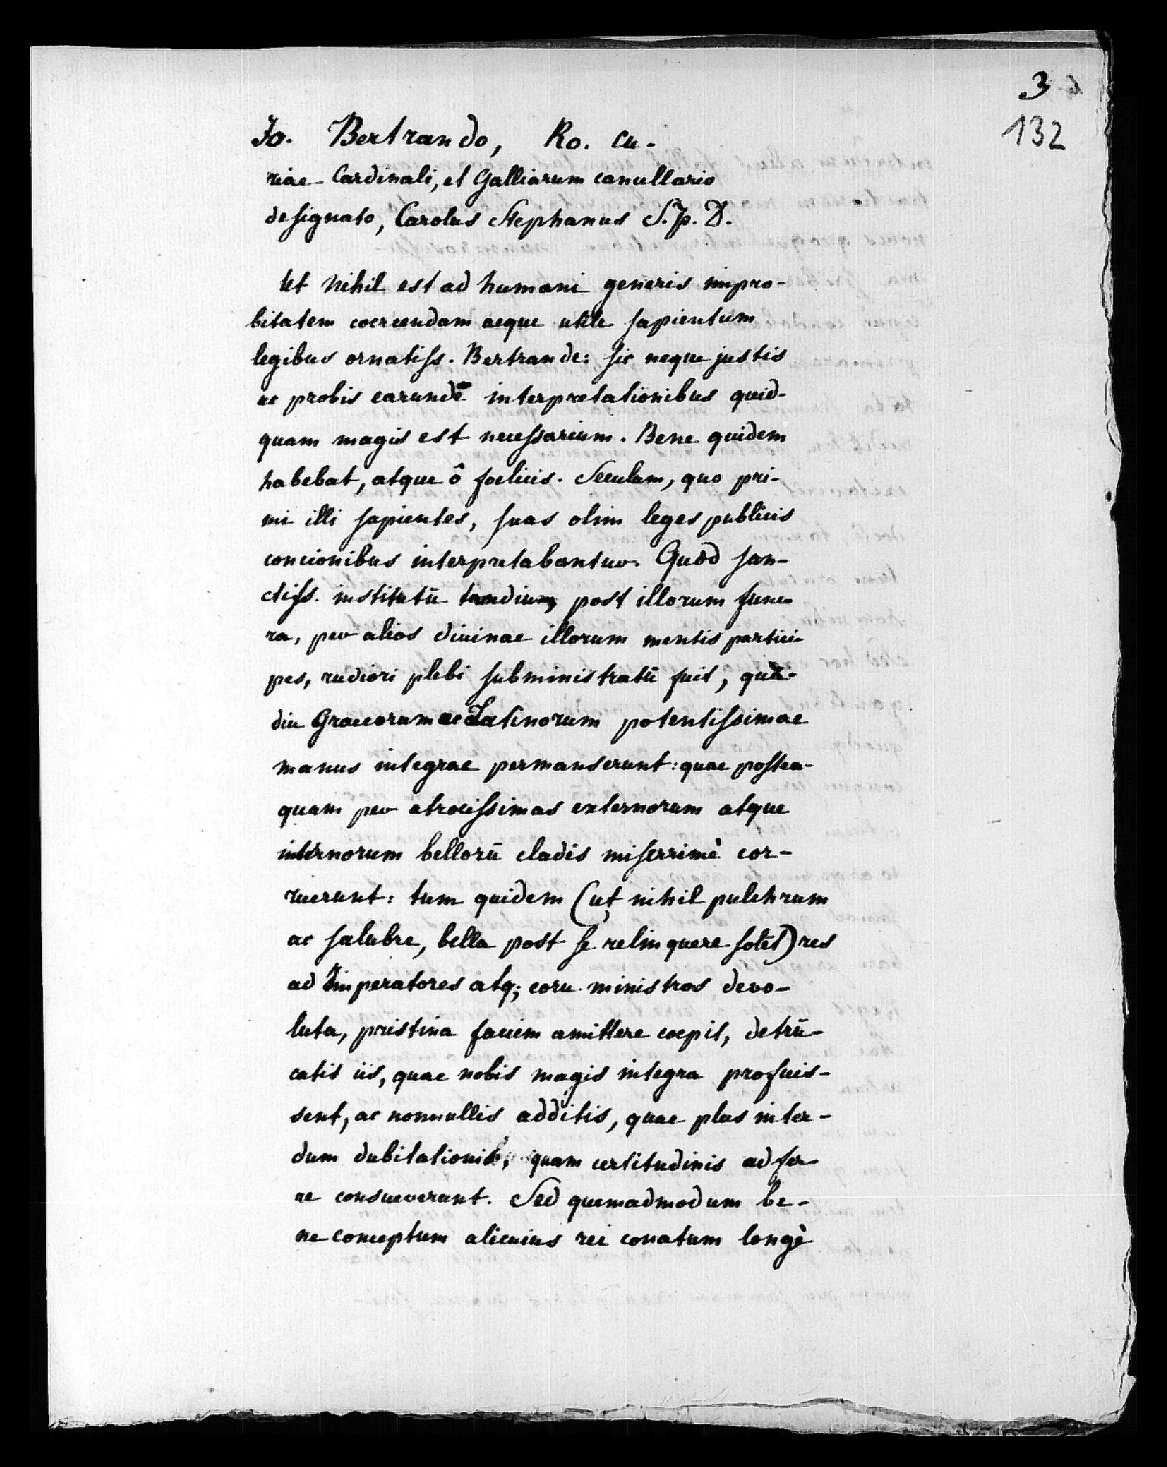 3
132
Jo. Bertrando, Ro. cu-
riae Cardinali, et Galliarum cancellario
designato, Carolus Stephanus S. P. D.
Ut nihil est ad humani generis impro-
bitatem coercendam aeque utile sapientum
legibus ornatiss. Bertrande: sic neque justis
ac probis earundē interpretationibus quid-
quam magis est necessarium. Bene quidem
habebat, atque ô foelicis. Seculum, quo pri-
mi illi sapientes, suas olim leges publicis
concionibus interpretabantur. Quod san-
ctiss. institutū tamdium post illorum fune-
ra, per alios diuinae illorum mentis partici-
pes, rudiori plebi subministratū fuit, quā-
diu Graecorum ac Latinorum potentissimae
manus integrae permanserunt: quae postea-
quam per atrocissimas externorum atque
internorum bellorū cladis miserrimè cor-
ruerunt: tum quidem (ut nihil pulchrum
ac salubre, bella post se relinquere solēt) res
ad Imperatores atq; eoru ministros devo-
luta, pristina faciem amittere coepit, detrū-
catis iis, quae nobis magis integra profuis-
sent, ac nonnullis additis, quae plus inter-
dum dubitationis, quam certitudinis adfer-
re consueverunt. Sed quemadmodum be-
ne conceptum alicuius rei conatum longè